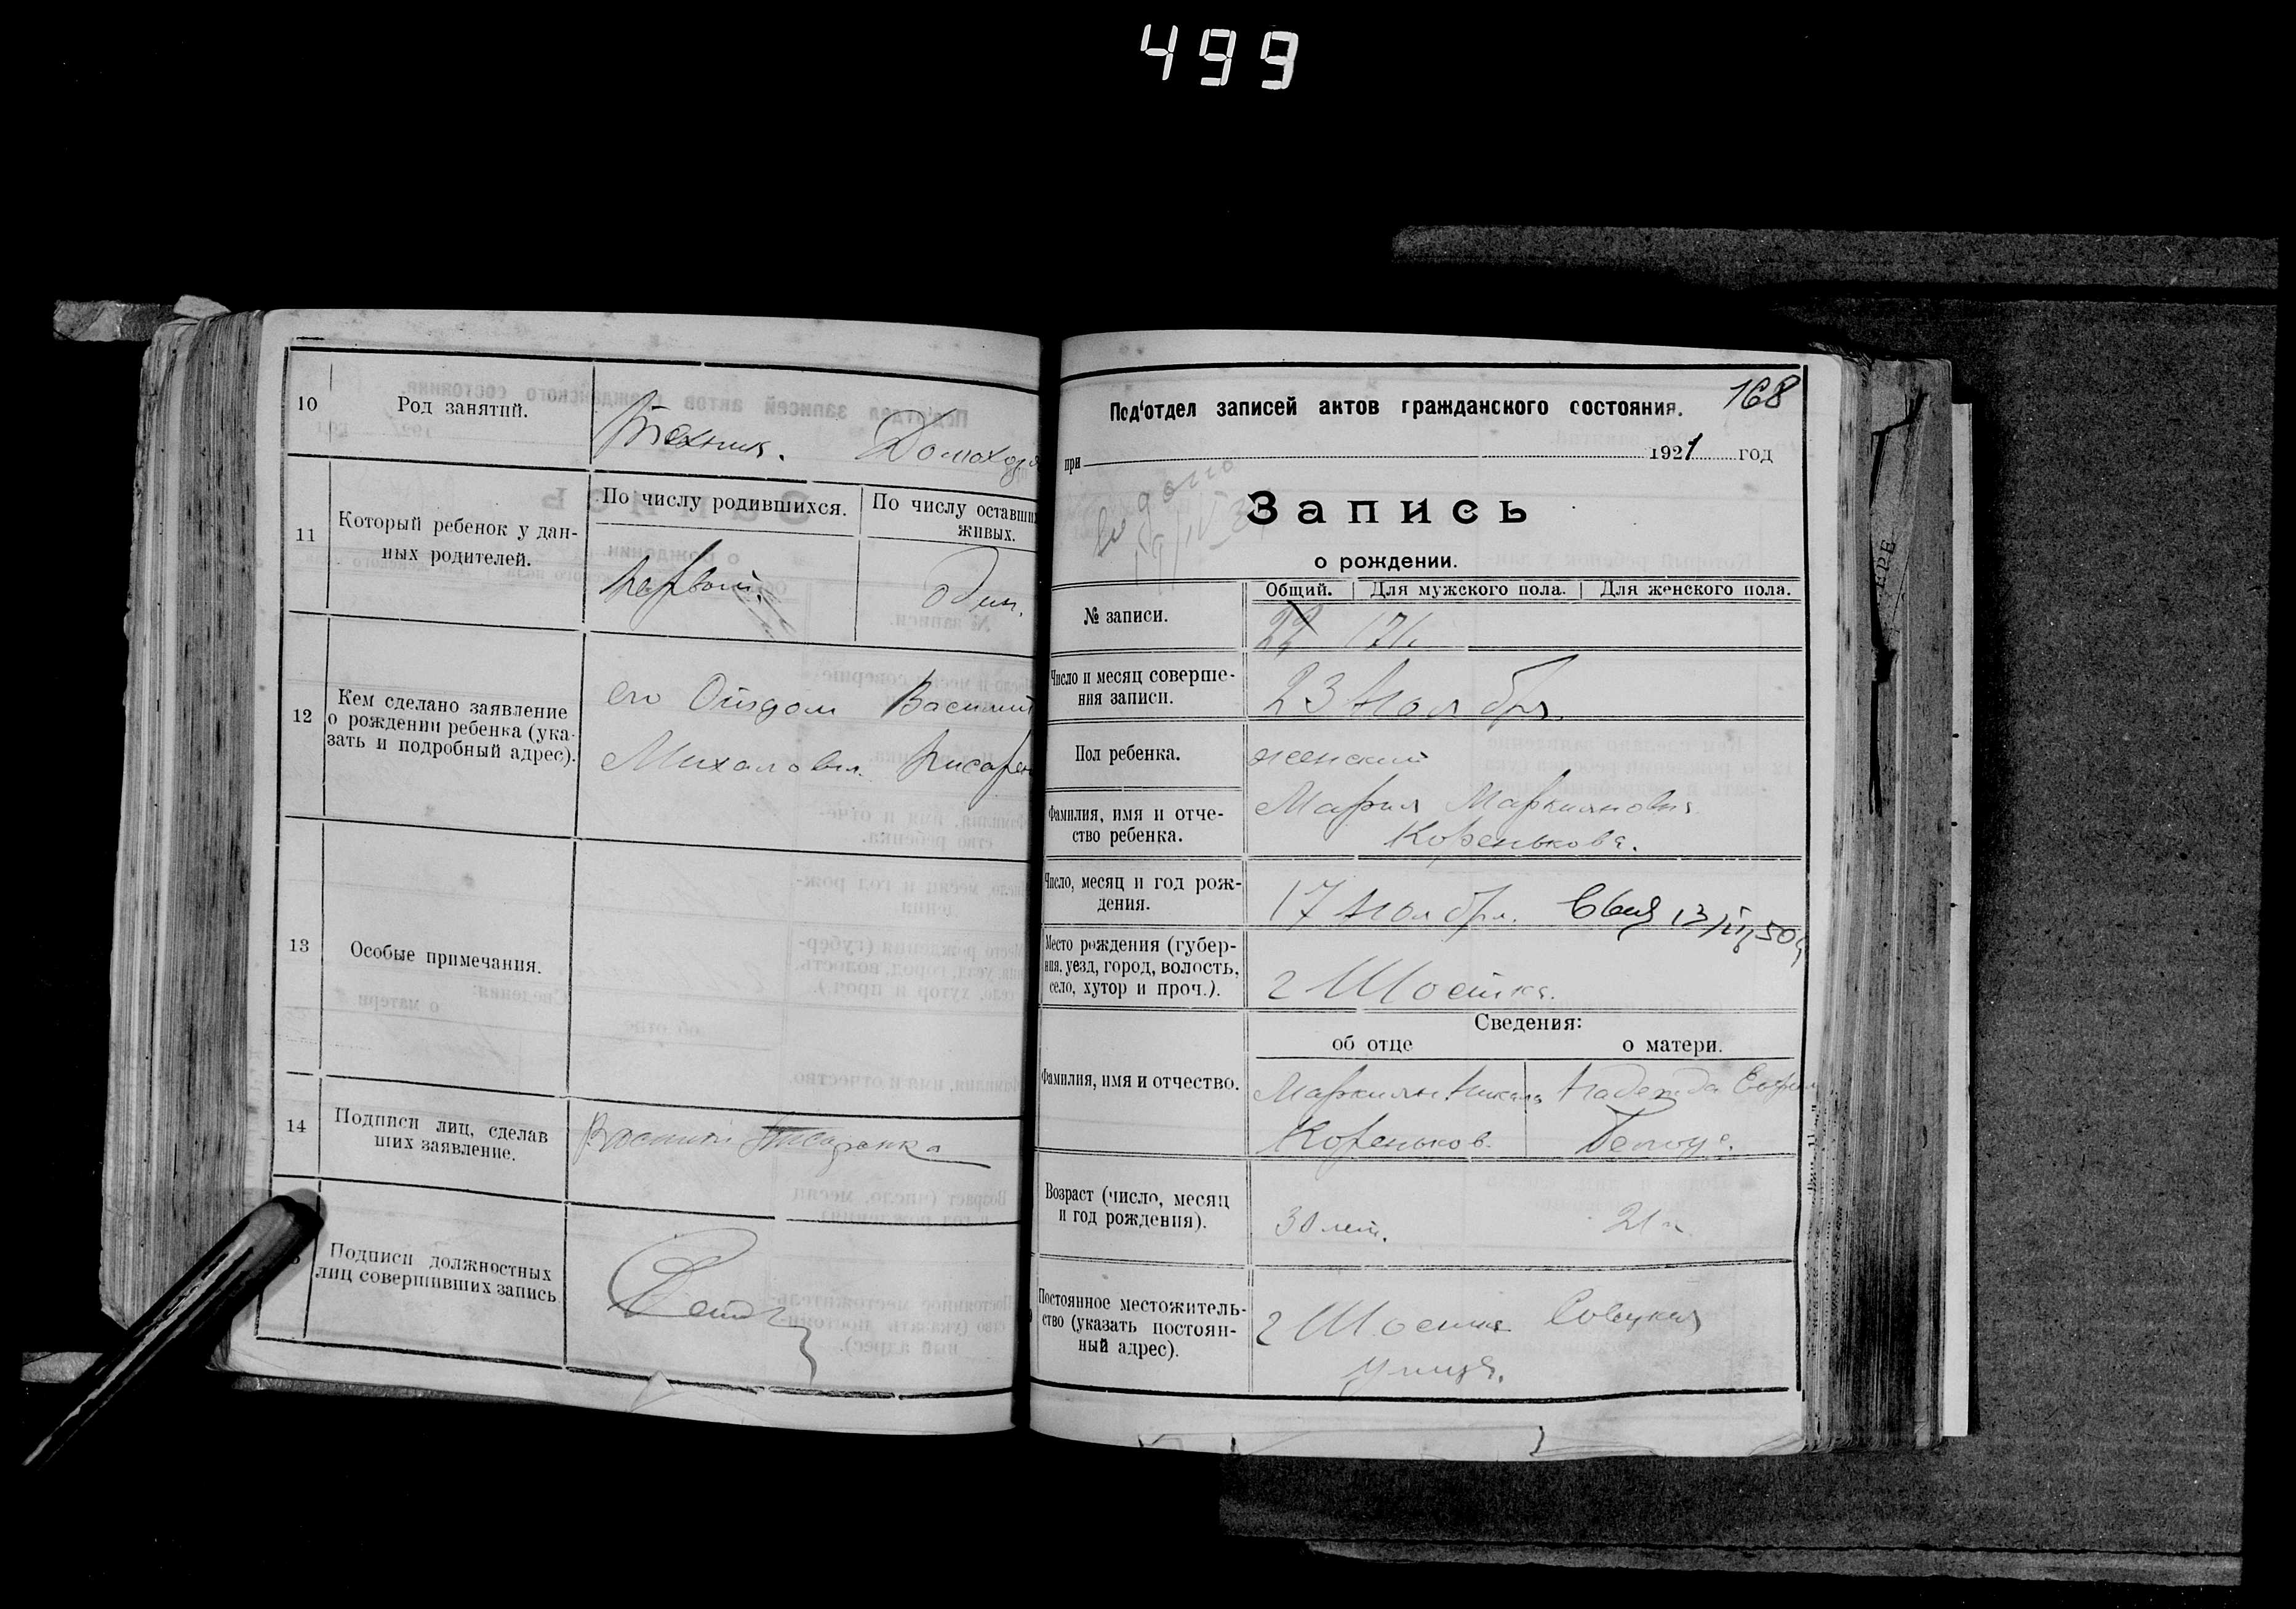 499
10
Род занятий.
Техник. Домохозя
11
Который ребенок у дан-
ных родителей.
По числу родившихся.
По числу оставши
живых.
первый.
один.
12
Кем сделано заявление
о рождении ребенка (ука-
зать и подробный адрес).
его Отцом Василий
Михалович Писарен
13
Особые примечания.
14
Подписи лиц, сделав
ших заявление.
Василий Писаренка
Подписи должностных
лиц совершивших запись
168
Под‘отдел записей актов гражданского состояния.
при 1921 год
Запись
о рождении.
№ записи.
Общий. Для мужского пола. Для женского пола.
Число и месяц соверше-
ния записи.
23 Ноября.
Пол ребенка.
женский
Фамилия, имя и отче-
ство ребенка.
Мария Маркиановна
Коренькова.
Число, месяц и год рож-
дения.
17 Ноября.
Место рождения (губер-
ния, уезд, город, волость,
село, хутор и проч.).
г Шостка.
Сведения:
об отце о матери.
Фамилия, имя и отчество.
Маркиян Никола
Кореньков.
Надежда
Возраст (число, месяц
и год рождения).
30 лет.
21 "
Постоянное местожитель-
ство (указать постоян-
ный адрес).
г Шостка Совецкая
улица.